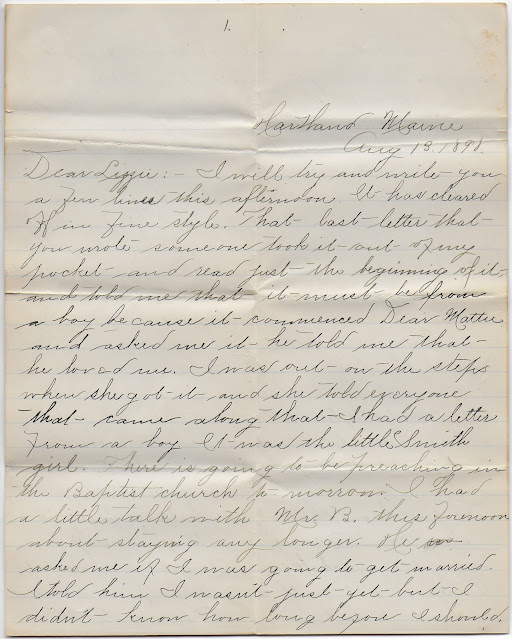 1.
Hartland Maine
Aug 13, 1898.
Dear Lizzie:- I will try and write you
a few lines this afternoon. It has cleared
off in fine style. That last letter that
you wrote someone took it out of my
pocket and read just the beginning of it
and told me that it must be from
a boy because it commenced Dear Mattie
and asked me if he told me that
he loved me. I was out on the steps
when she got it and she told everyone
that came along that I had a letter
from a boy It was the little Smith
girl. There is going to be preaching in
the Baptist church to morrow. I had
a little talk with Mr. B. this forenoon
about staying any longer. He
asked me if I was going to get married.
I told him I wasn't just yet but I
didn't know how long before I should.